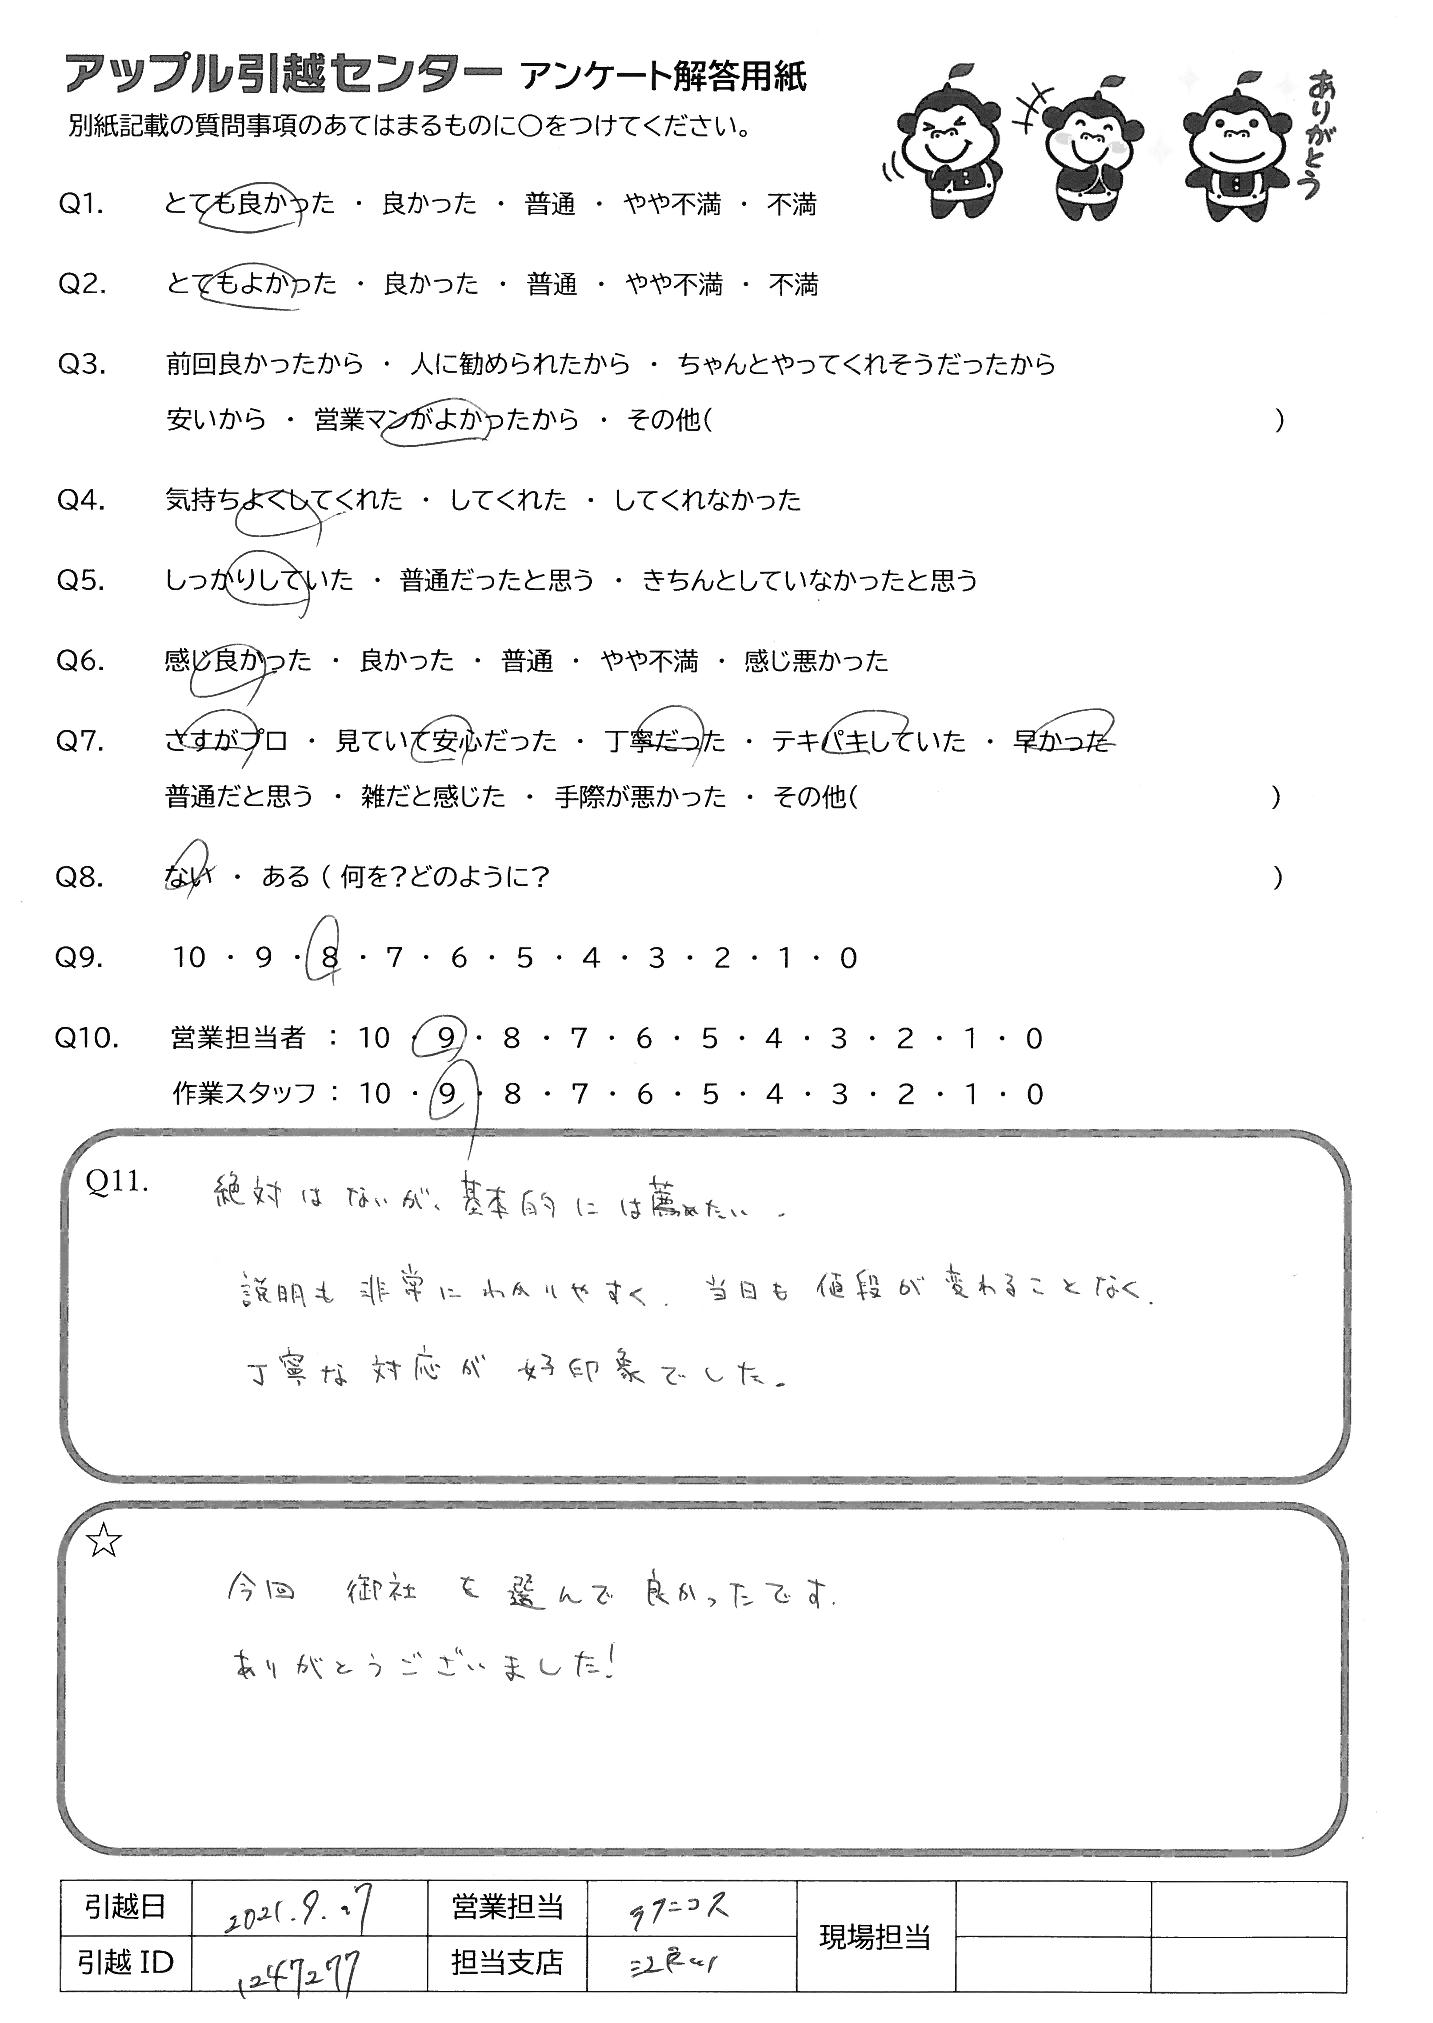 アップル引越センター アンケート解答用紙
ありがとう
別紙記載の質問事項のあてはまるものに○をつけてください。
Q1. とても良かった ・ 良かった ・ 普通 ・ やや不満 ・ 不満
Q2. とてもよかった ・ 良かった ・ 普通 ・ やや不満 ・ 不満
Q3. 前回良かったから ・ 人に勧められたから ・ ちゃんとやってくれそうだったから
安いから ・ 営業マンがよかったから ・ その他( )
Q4. 気持ちよくしてくれた ・ してくれた ・ してくれなかった
Q5. しっかりしていた ・ 普通だったと思う ・ きちんとしていなかったと思う
Q6. 感じ良かった ・ 良かった ・ 普通 ・ やや不満 ・ 感じ悪かった
Q7. さすがプロ ・ 見ていて安心だった ・ 丁寧だった ・ テキパキしていた ・ 早かった
普通だと思う ・ 雑だと感じた ・ 手際が悪かった ・ その他( )
Q8. ない ・ ある ( 何を?どのように? )
Q9. 10 ・ 9 ・ 8 ・ 7 ・ 6 ・ 5 ・ 4 ・ 3 ・ 2 ・ 1 ・ 0
Q10. 営業担当者 : 10 ・ 9 ・ 8 ・ 7 ・ 6 ・ 5 ・ 4 ・ 3 ・ 2 ・ 1 ・ 0
作業スタッフ : 10 ・ 9 ・ 8 ・ 7 ・ 6 ・ 5 ・ 4 ・ 3 ・ 2 ・ 1 ・ 0
Q11. 絶対はないが、基本的には薦めたい.
説明も非常にわかりやすく、当日も値段が変わることなく、
丁寧な対応が好印象でした。
☆
今回 御社を選んで良かったです.
ありがとうございました!
引越日 2021.9.27 営業担当 現場担当
引越ID 1247277 担当支店